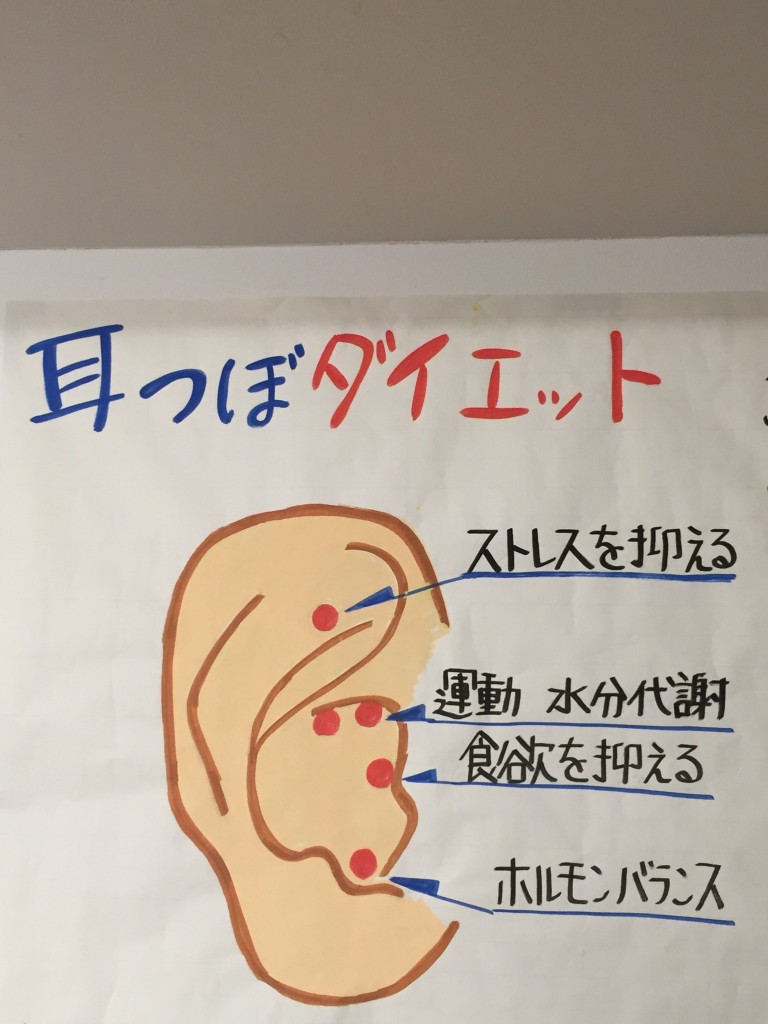 耳つぼダイエット
ストレスを抑える
運動 水分代謝
食欲を抑える
ホルモンバランス